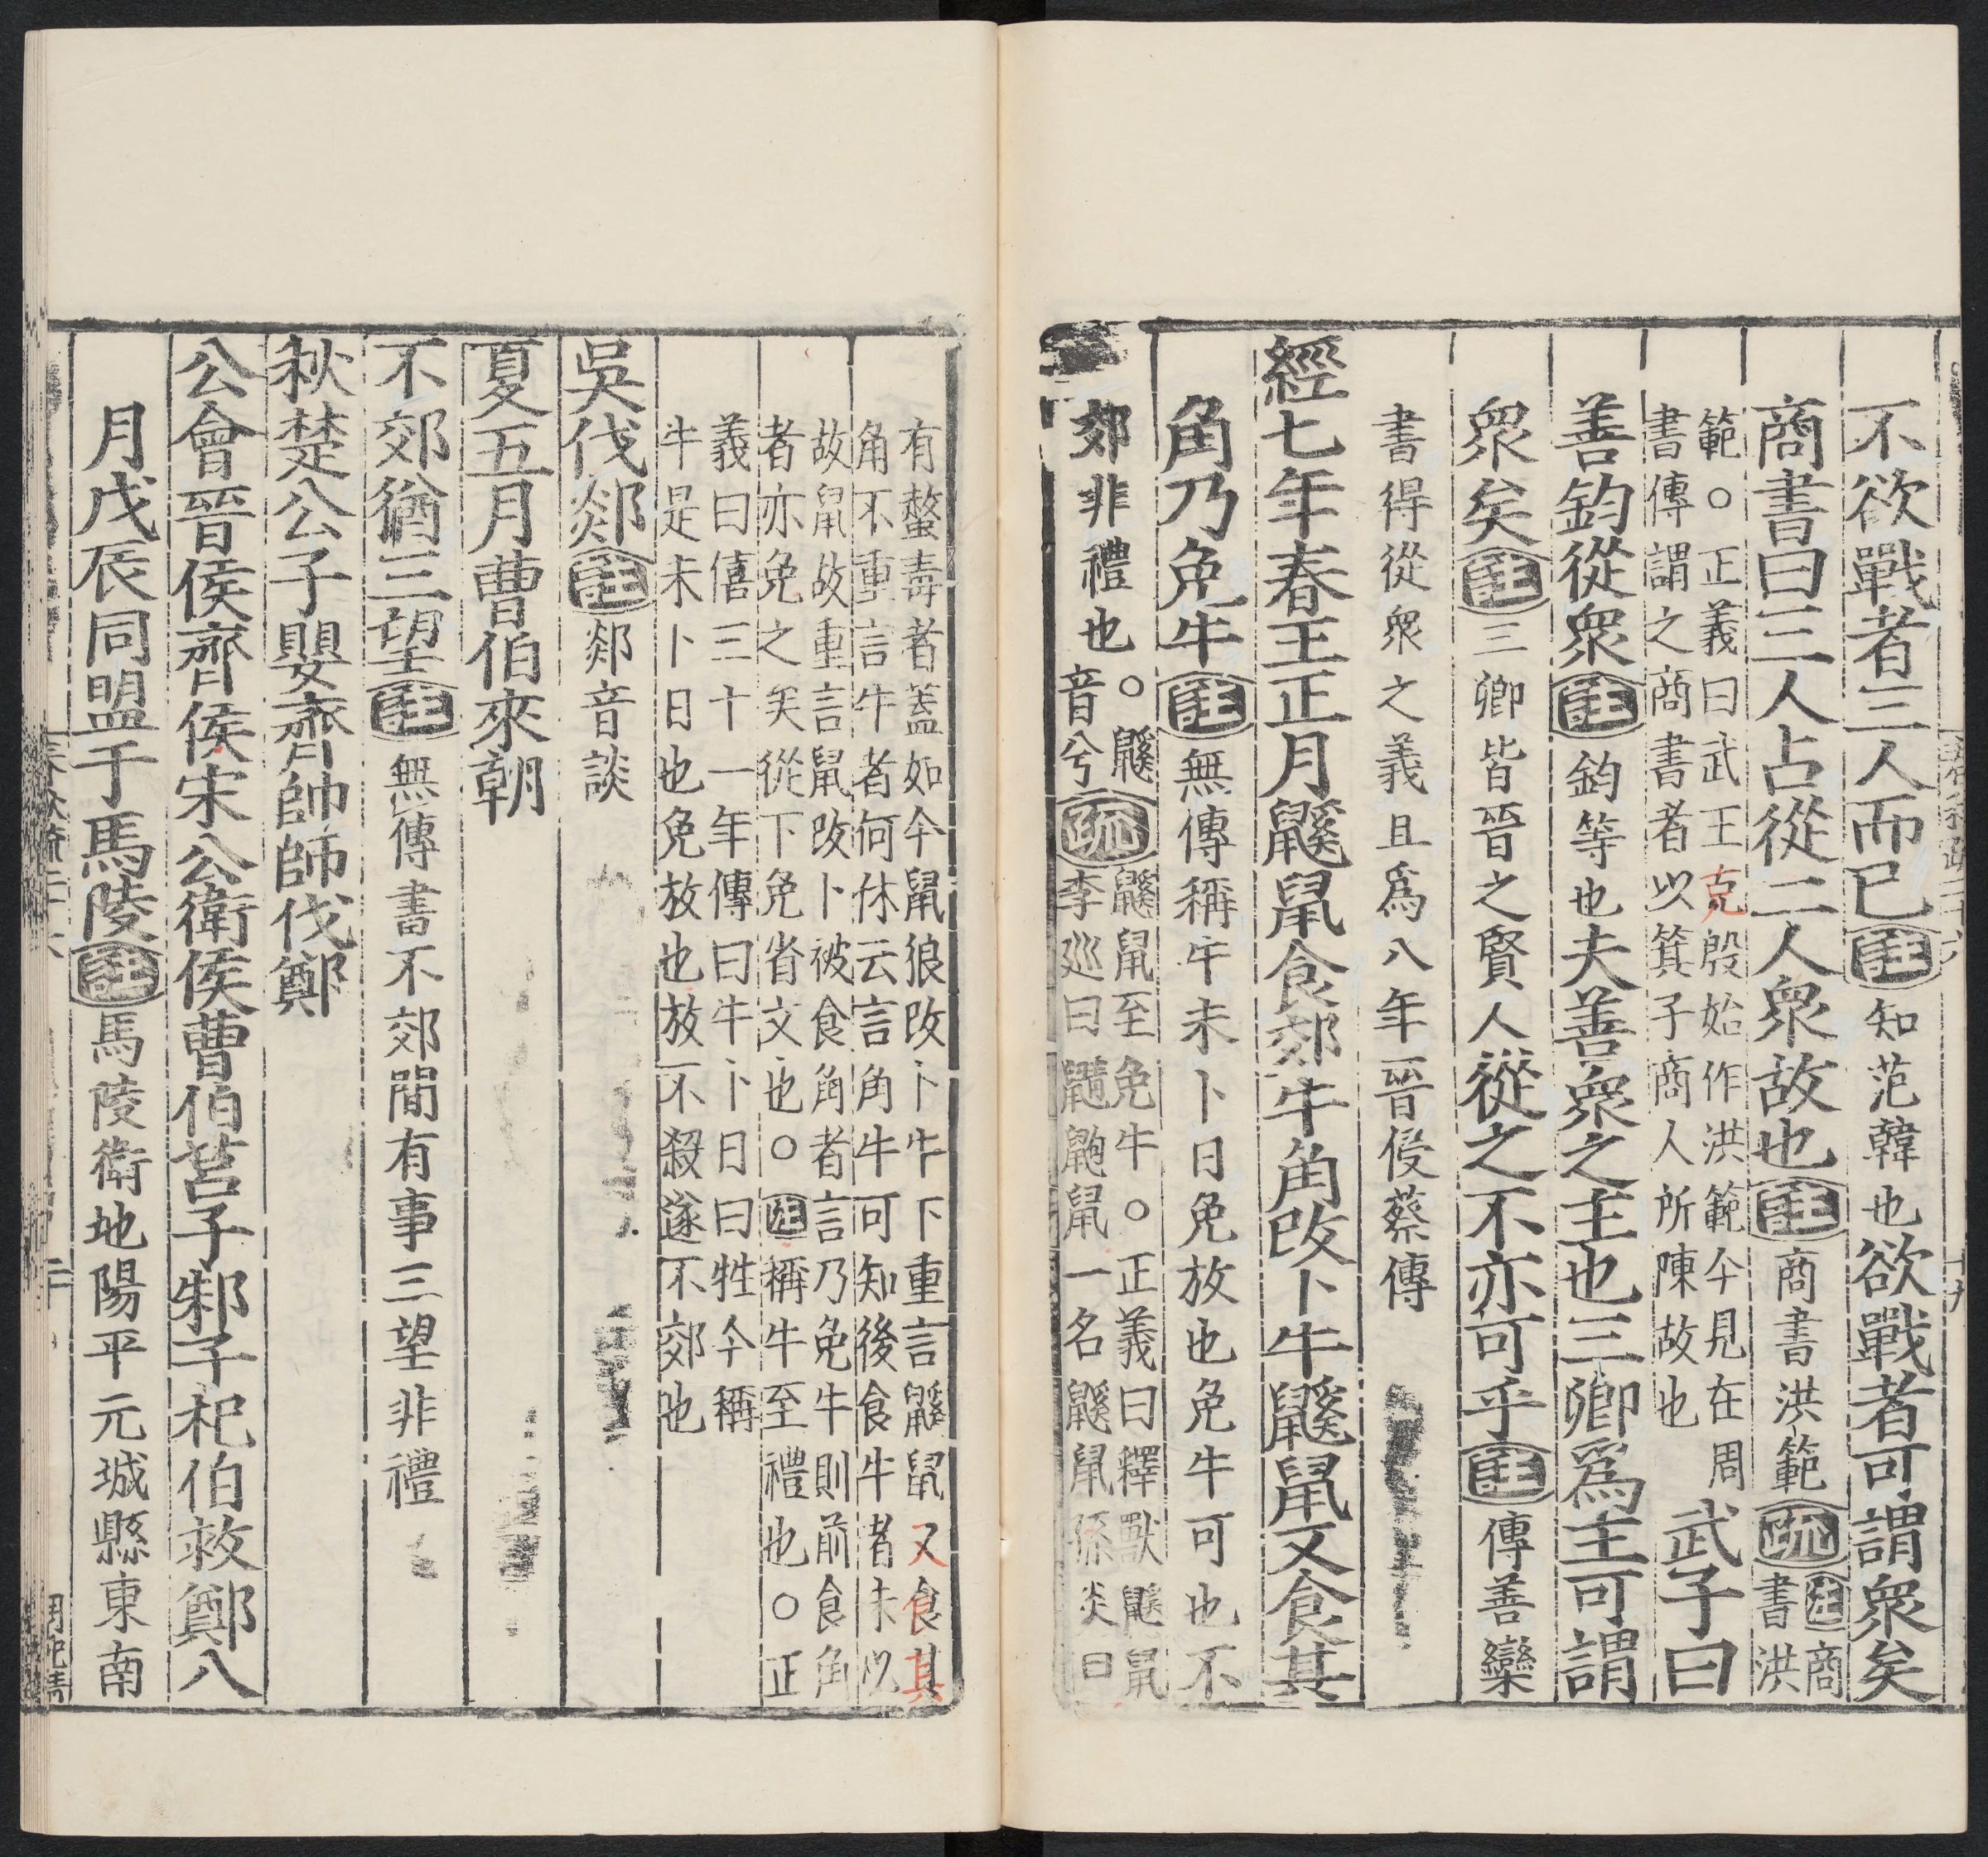 不欲戰者三人而已註知范韓也欲戰者可謂衆矣
商書曰三人占從二人衆故也註商書洪範疏註商
書洪
範○正義曰武王克殷始作洪範今見在周
書傳謂之商書者以箕子商人所陳故也
武子曰
善鈞從衆註鈞等也夫善衆之主也三卿爲主可謂
衆矣註三卿皆晉之賢人從之不亦可乎註傳善欒
書得從衆之義且爲八年晉侵蔡傳
經七年春王正月鼷鼠食郊牛角改卜牛鼷鼠又食其
角乃免牛註無傳稱牛未卜日免放也免牛可也不
郊非禮也○鼷
音兮
疏鼷鼠至免牛○正義曰釋獸鼷鼠
李巡曰鼱鼩鼠一名鼷鼠孫炎曰
有螫毒者蓋如今鼠狼改卜牛下重言鼷鼠又食其
角不重言牛者何休云言角牛可知後食牛者未必
故鼠故重言鼠改卜被食角者言乃免牛則前食角
者亦免之矣從下免省文也○註稱牛至禮也○正
義曰僖三十一年傳曰牛卜日曰牲今稱
牛是未卜日也免放也放不殺遂不郊也
吳伐郯註郯音談
夏五月曹伯來朝
不郊猶三望註無傳書不郊間有事三望非禮
秋楚公子嬰齊帥師伐鄭
公會晉侯齊侯宋公衛侯曹伯莒子邾子杞伯救鄭八
月戊辰同盟于馬陵註馬陵衛地陽平元城縣東南